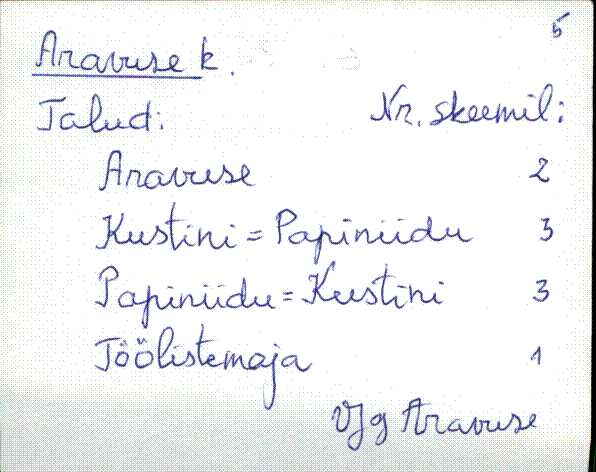 5
Aravuse k.
Talud: Nr. skeemil:
Aravuse 2
Kustini = Papiniidu 3
Papiniidu = Kustini 3
Töölistemaja 1
VJg Aravuse